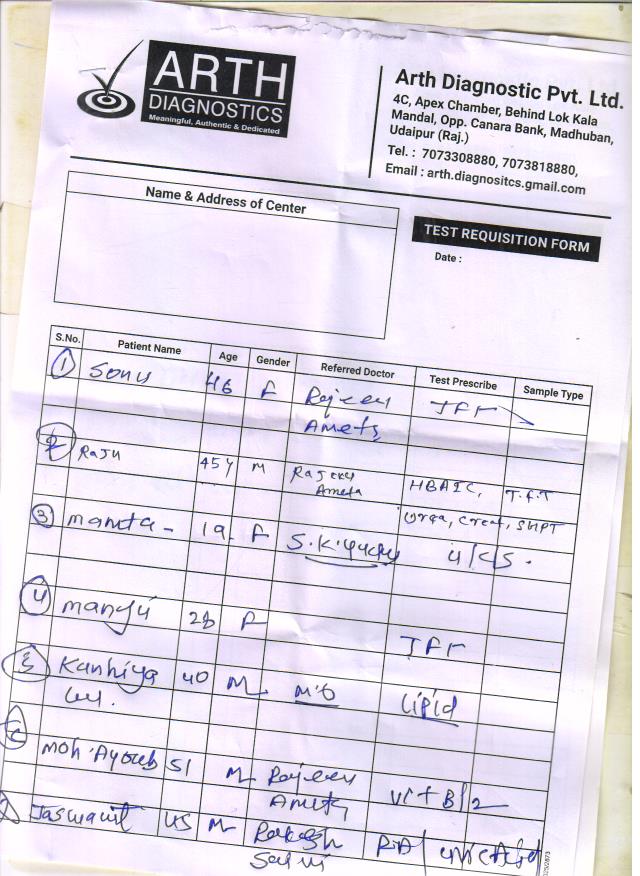 ARTH
DIAGNOSTICS
Meaningful, Authentic & Dedicated
Arth Diagnostic Pvt. Ltd.
4C, Apex Chamber, Behind Lok Kala
Mandal, Opp. Canara Bank, Madhuban,
Udaipur (Raj.)
Tel. : 7073308880, 7073818880,
Email : arth.diagnositcs.gmail.com
Name & Address of Center
TEST REQUISITION FORM
Date :
S.No. Patient Name Age Gender Referred Doctor Test Prescribe Sample Type
1 Sonu 46 F Rajeev
Ameta
2 Raju 45 Y M Rajeev HBA1C, T.F.T
Ameta
Urea, Creat, SGPT
3 mamta - 19 F S.K. U/C/S.
4 manju 28 F
5 Kanhiya 40 M Lipid
6 Moh. Ayoub 51 M Rajeev Vit B12
Ameta
7 Jaswant 45 M Rakesh RA/